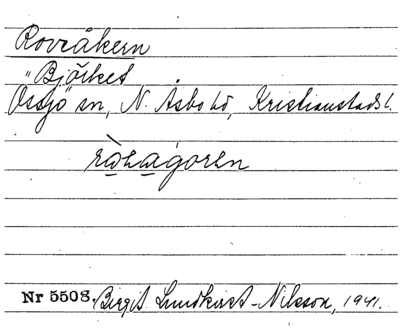 Rovråkern
"Björket
Össjö" sn, N. Åsbo hd, Kristianstads l.
Nr 5508. Birgit Lundkvist-Nilsson, 1941.